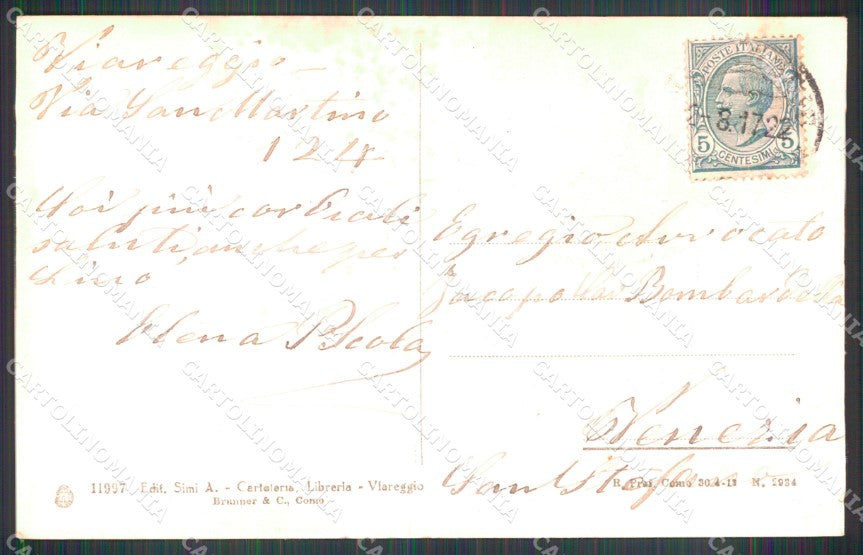 Viareggio -
Via San Martino
124
Coi più cordiali
saluti, anche per
Lino
Elena
POSTE ITALIANE
8.17.22
5 CENTESIMI 5
Egregio Avvocato
Jacopo Bombardella
Venezia
Sant Stefano
11997 Edit. Simi A. - Cartoleria, Libreria - Viareggio
Brunner & C., Como
R. Pref. Como 30-4-13 N. 2984
CARTOLINOMANIA